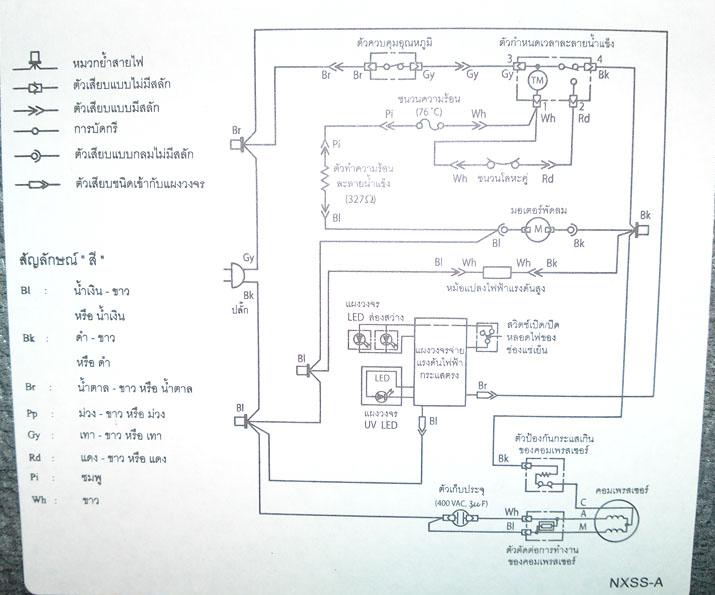 หมวกย้ำสายไฟ
ตัวเสียบแบบไม่มีสลัก
ตัวเสียบแบบมีสลัก
การบัดกรี
ตัวเสียบแบบกลมไม่มีสลัก
ตัวเสียบชนิดเข้ากับแผงวงจร
สัญลักษณ์ " สี "
Bl : น้ำเงิน - ขาว
หรือ น้ำเงิน
Bk : ดำ - ขาว
หรือ ดำ
Br : น้ำตาล - ขาว หรือ น้ำตาล
Pp : ม่วง - ขาว หรือ ม่วง
Gy : เทา - ขาว หรือ เทา
Rd : แดง - ขาว หรือ แดง
Pi : ชมพู
Wh : ขาว
ตัวควบคุมอุณหภูมิ
Br Br Gy Gy
ตัวกำหนดเวลาละลายน้ำแข็ง
3 4
Gy TM Bk
2
Wh Rd
ชนวนความร้อน
(76 °C)
Pi Wh
Br
Pi
ตัวทำความร้อน
ละลายน้ำแข็ง
(327Ω)
Bl
Wh ชนวนโลหะคู่ Rd
มอเตอร์พัดลม
Bl M Bk
Bk
Bl Wh Wh Bk
หม้อแปลงไฟฟ้าแรงดันสูง
Gy
Bk
ปลั๊ก
แผงวงจร
LED ส่องสว่าง
แผงวงจรจ่าย
แรงดันไฟฟ้า
กระแสตรง
สวิตช์เปิด/ปิด
หลอดไฟของ
ช่องแช่เย็น
LED
แผงวงจร
UV LED
Bl
Br
Bl
Bl
ตัวป้องกันกระแสเกิน
ของคอมเพรสเซอร์
Bk
คอมเพรสเซอร์
C
A
M
ตัวเก็บประจุ
(400 VAC, 3μF)
Wh
Bl
ตัวตัดต่อการทำงาน
ของคอมเพรสเซอร์
NXSS-A